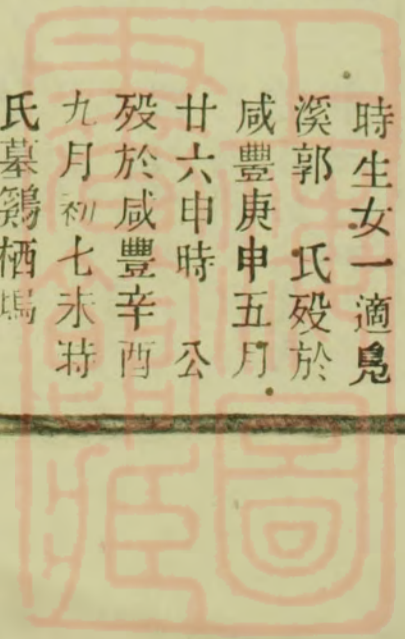 時生女一適鳧
溪郭 氏殁於
咸豐庚申五月
廿六申時 公
殁於咸豐辛酉
九月初七未時
氏墓鷄栖塢
上海圖
書館藏